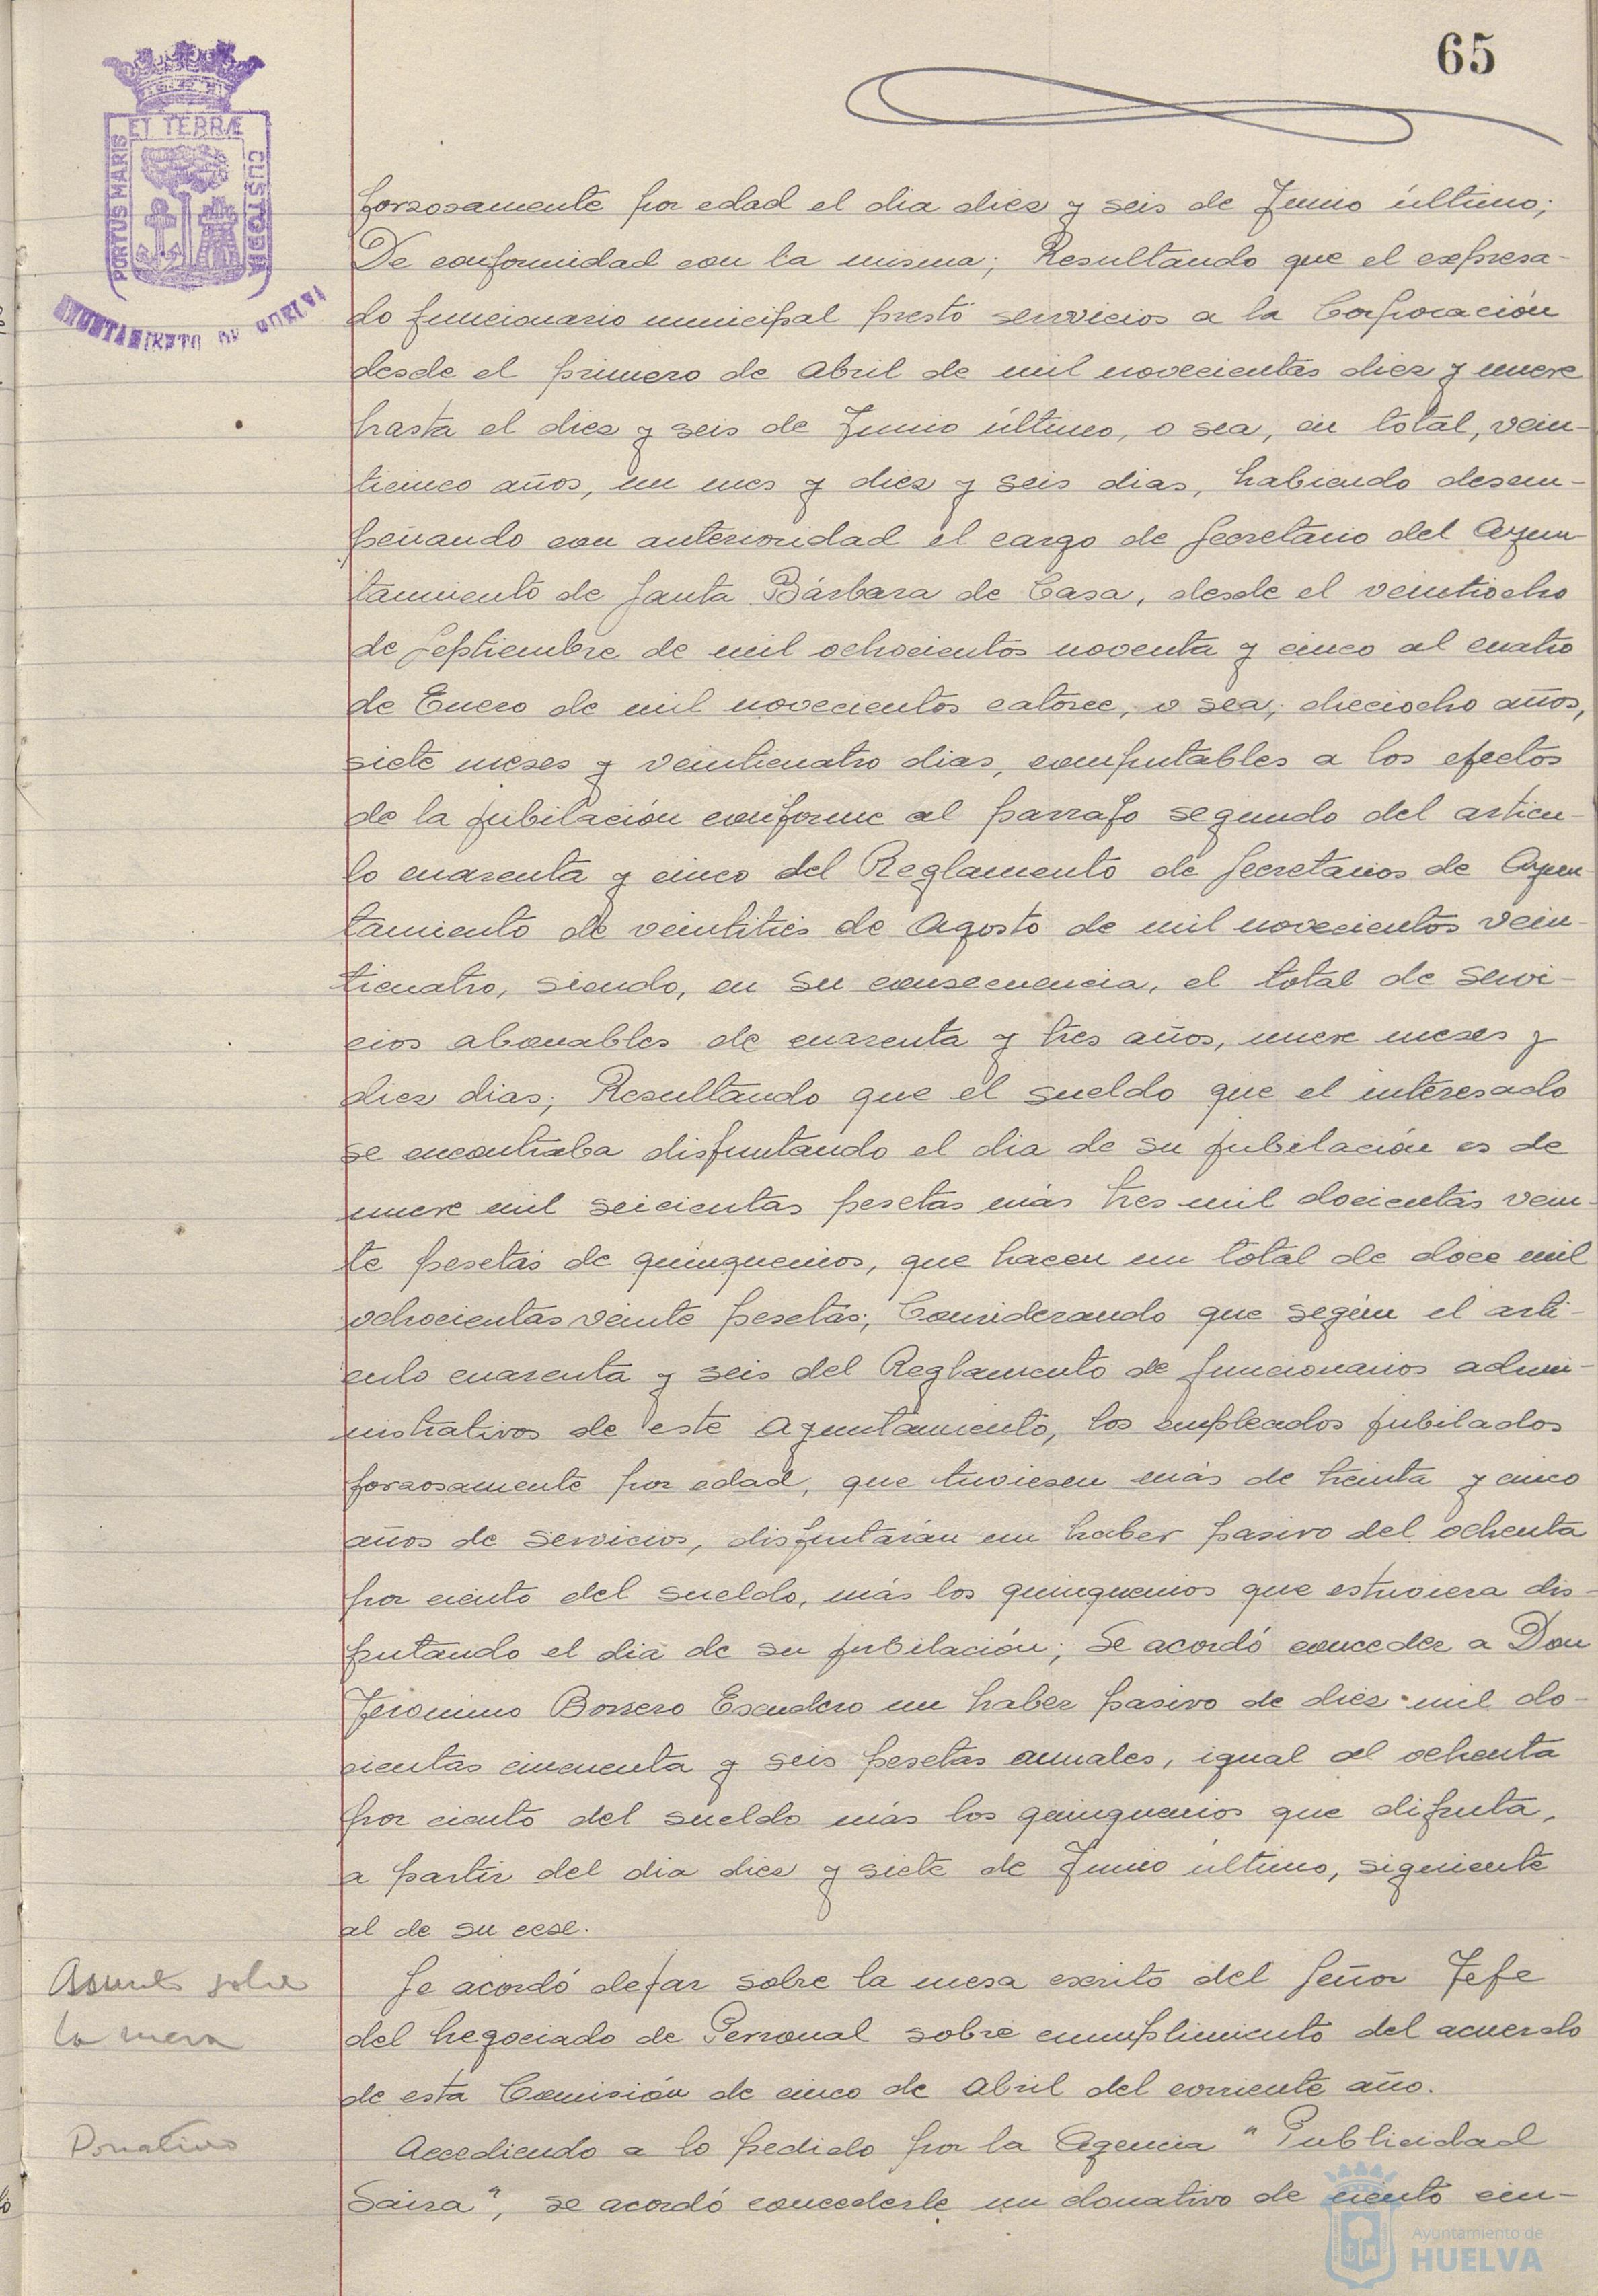 65
ET TERRÆ
PORTUS MARIS
CUSTODIA
AYUNTAMIENTO DE HUELVA
forzosamente por edad el dia diez y seis de Junio último;
De conformidad con la misma; Resultando que el expresa-
do funcionario municipal prestó servicios a la Corporación
desde el primero de Abril de mil novecientas diez y nueve
hasta el diez y seis de Junio último, o sea, en total, vein-
ticinco años, un mes y diez y seis dias, habiendo desem-
peñando con anterioridad el cargo de Secretario del Ayun-
tamiento de Santa Bárbara de Casa, desde el veintiocho
de Septiembre de mil ochocientos noventa y cinco al cuatro
de Enero de mil novecientos catorce, o sea, dieciocho años,
siete meses y veinticuatro dias, computables a los efectos
de la jubilación conforme al parrafo segundo del articu-
lo cuarenta y cinco del Reglamento de Secretarios de Ayun-
tamiento de veintitrés de Agosto de mil novecientos vein-
ticuatro, siendo, en su consecuencia, el total de servi-
cios abonables de cuarenta y tres años, nueve meses y
diez dias; Resultando que el sueldo que el interesado
se encontraba disfrutando el dia de su jubilación es de
nueve mil seicientas pesetas más tres mil docientas vein-
te pesetas de quinquenios, que hacen un total de doce mil
ochocientas veinte pesetas; Considerando que según el arti-
culo cuarenta y seis del Reglamento de funcionarios admi-
nistrativos de este Ayuntamiento, los empleados jubilados
forzosamente por edad, que tuviesen más de treinta y cinco
años de servicios, disfrutarán un haber pasivo del ochenta
por ciento del sueldo, más los quinquenios que estuviera dis-
frutando el dia de su jubilación; Se acordó conceder a Don
Jeronimo Borrero Escudero un haber pasivo de diez mil do-
cientas cincuenta y seis pesetas anuales, igual al ochenta
por ciento del sueldo más los quinquenios que difruta,
a partir del dia diez y siete de Junio último, siguiente
al de su cese.
Asunto sobre
la mesa
Se acordó dejar sobre la mesa escrito del Señor Jefe
del Negociado de Personal sobre cumplimiento del acuerdo
de esta Comisión de cinco de Abril del corriente año.
Donativo
Accediendo a lo pedido por la Agencia "Publicidad
Saira", se acordó concederle un donativo de ciento cin-
Ayuntamiento de
HUELVA